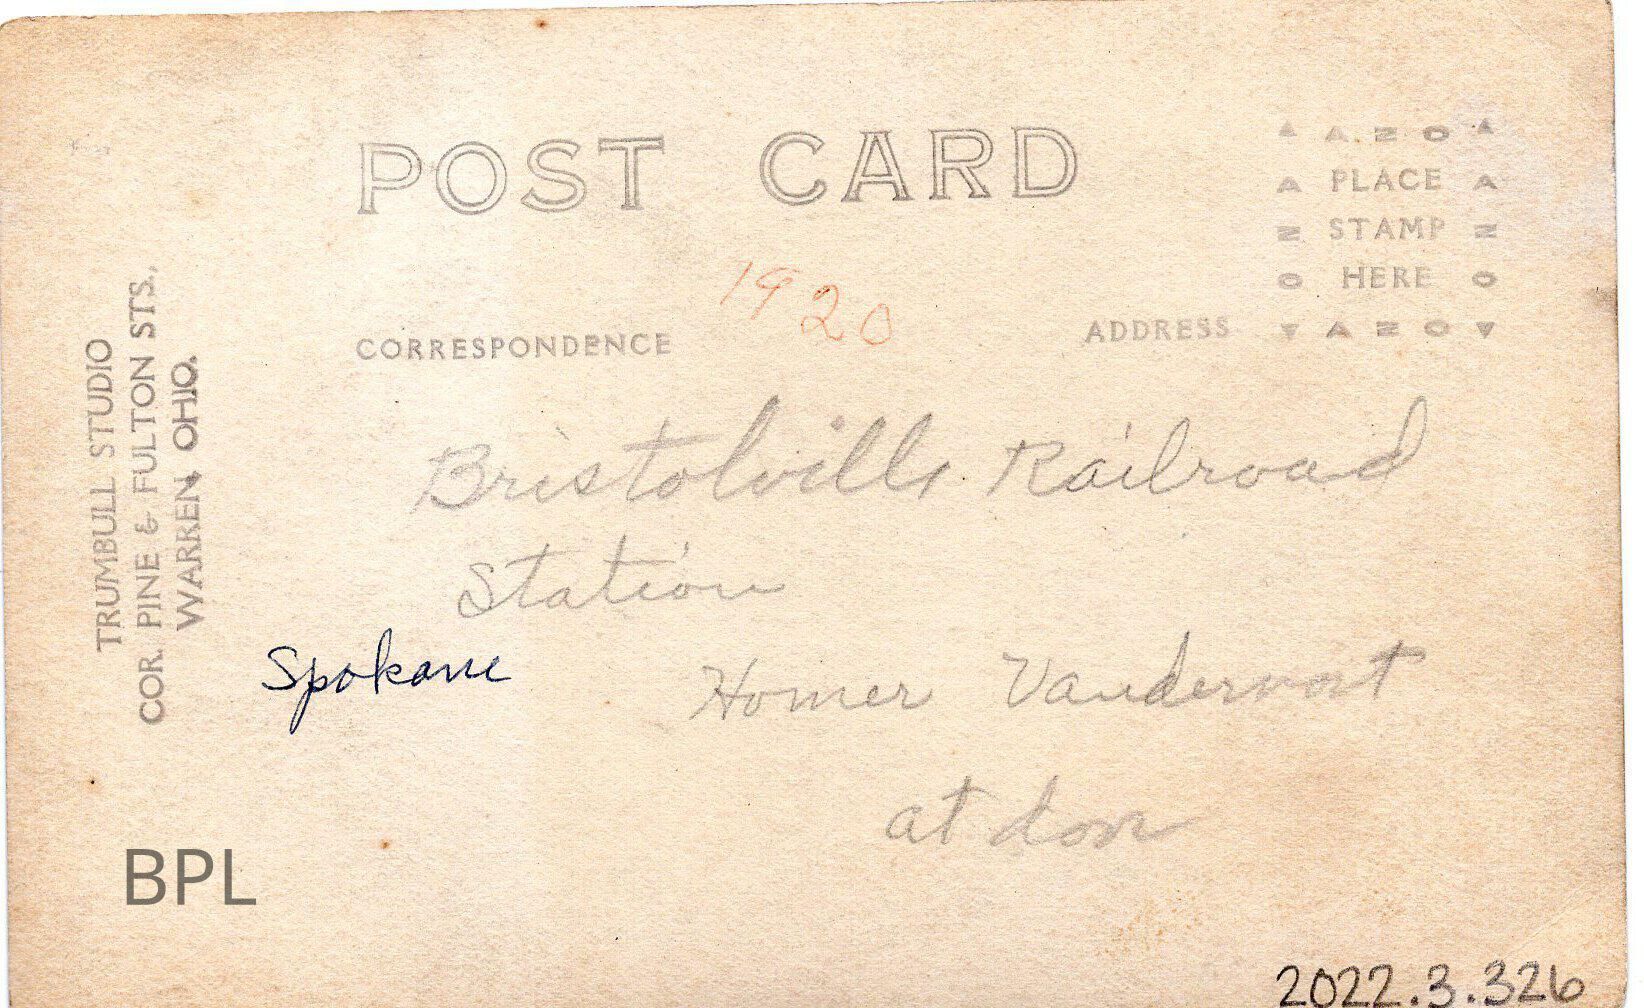 POST CARD
▲ AZO ▲
A PLACE A
Z STAMP Z
O HERE O
▼ AZO ▼
1920
CORRESPONDENCE
ADDRESS
TRUMBULL STUDIO
COR. PINE & FULTON STS.,
WARREN, OHIO.
Bristolville Railroad
Station
Spokane
Homer Vandervort
at door
BPL
2022.3.326